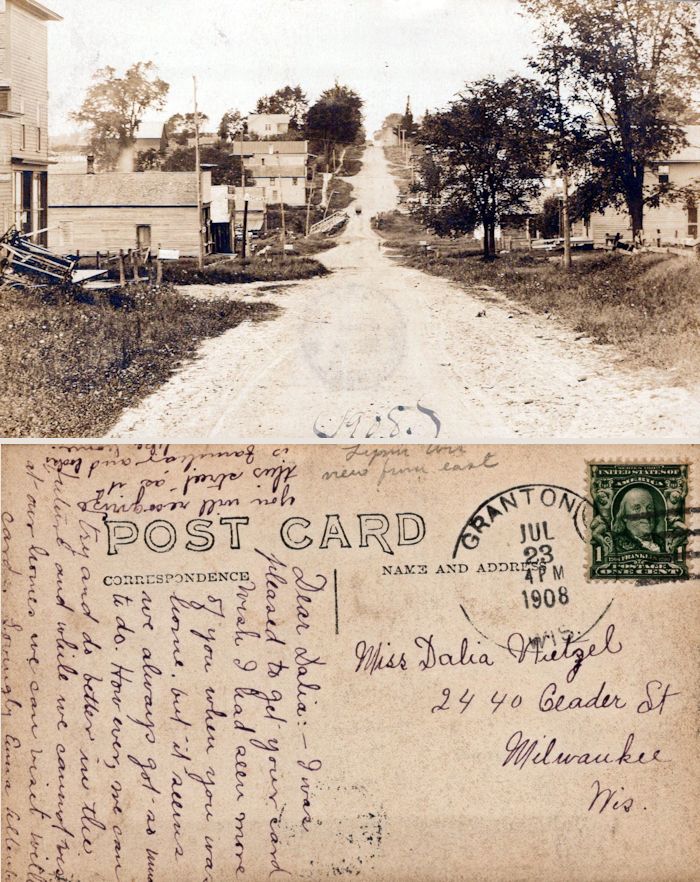 (1908.)
view from east
POST CARD
CORRESPONDENCE
NAME AND ADDRESS
GRANTON
JUL
23
4 PM
1908
WIS.
UNITED STATES OF
AMERICA
1 FRANKLIN 1
POSTAGE
ONE CENT
Miss Dalia Nietzel
2440 Ceader St
Milwaukee
Wis.
Dear Dalia:- I was
pleased to get your card
Wish I had seen more
of you when you was
home, but it seems
we always got so much
to do. However, we can
try and do better in the
future and while we cannot vis
at our homes we can visit with
card. Lovingly Emma
you will recognize
this street as it
is familiar and looks